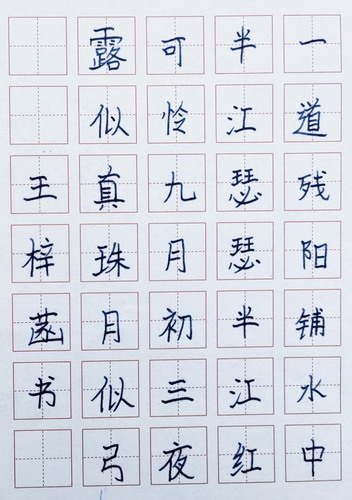 一道残阳铺水中
半江瑟瑟半江红
可怜九月初三夜
露似真珠月似弓
王梓菡书